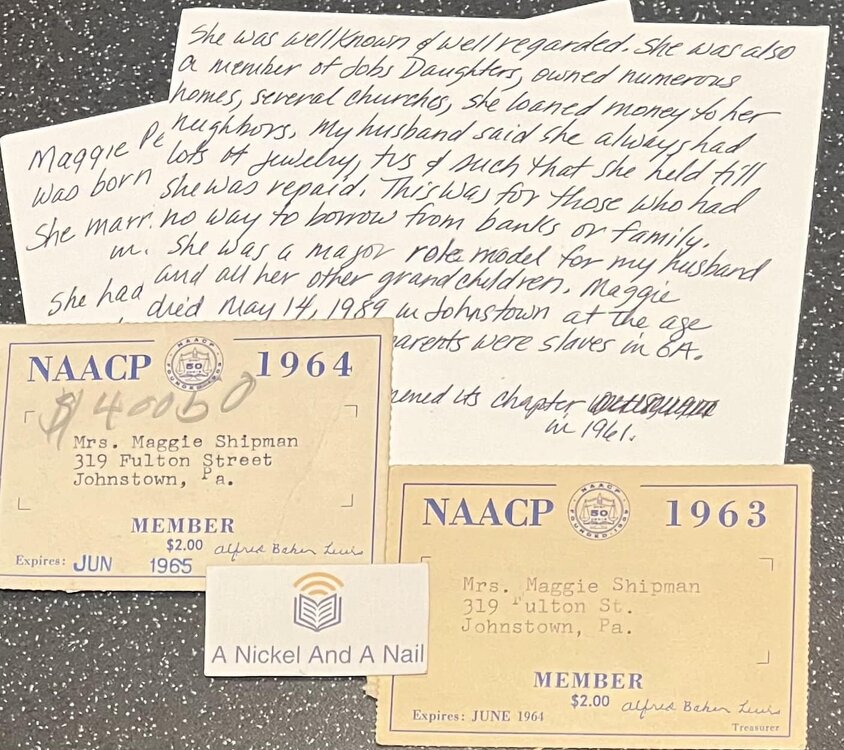 She was well known & well regarded. She was also
a member of Jobs Daughters, owned numerous
homes, several churches, she loaned money to her
neighbors. My husband said she always had
lots of jewelry, tvs & such that she held till
she was repaid. This was for those who had
no way to borrow from banks or family.
She was a major role model for my husband
and all her other grandchildren. Maggie
died May 14, 1989 in Johnstown at the age
parents were slaves in GA.
its chapter
in 1961.
Maggie
was born
She
She had
NAACP 1964
NAACP
50
FOUNDED 1909
$40050
Mrs. Maggie Shipman
319 Fulton Street
Johnstown, Pa.
MEMBER
$2.00 Alfred Baker Lewis
Expires: JUN 1965
NAACP 1963
NAACP
50
FOUNDED 1909
Mrs. Maggie Shipman
319 Fulton St.
Johnstown, Pa.
MEMBER
$2.00 Alfred Baker Lewis
Expires: JUNE 1964
Treasurer
A Nickel And A Nail